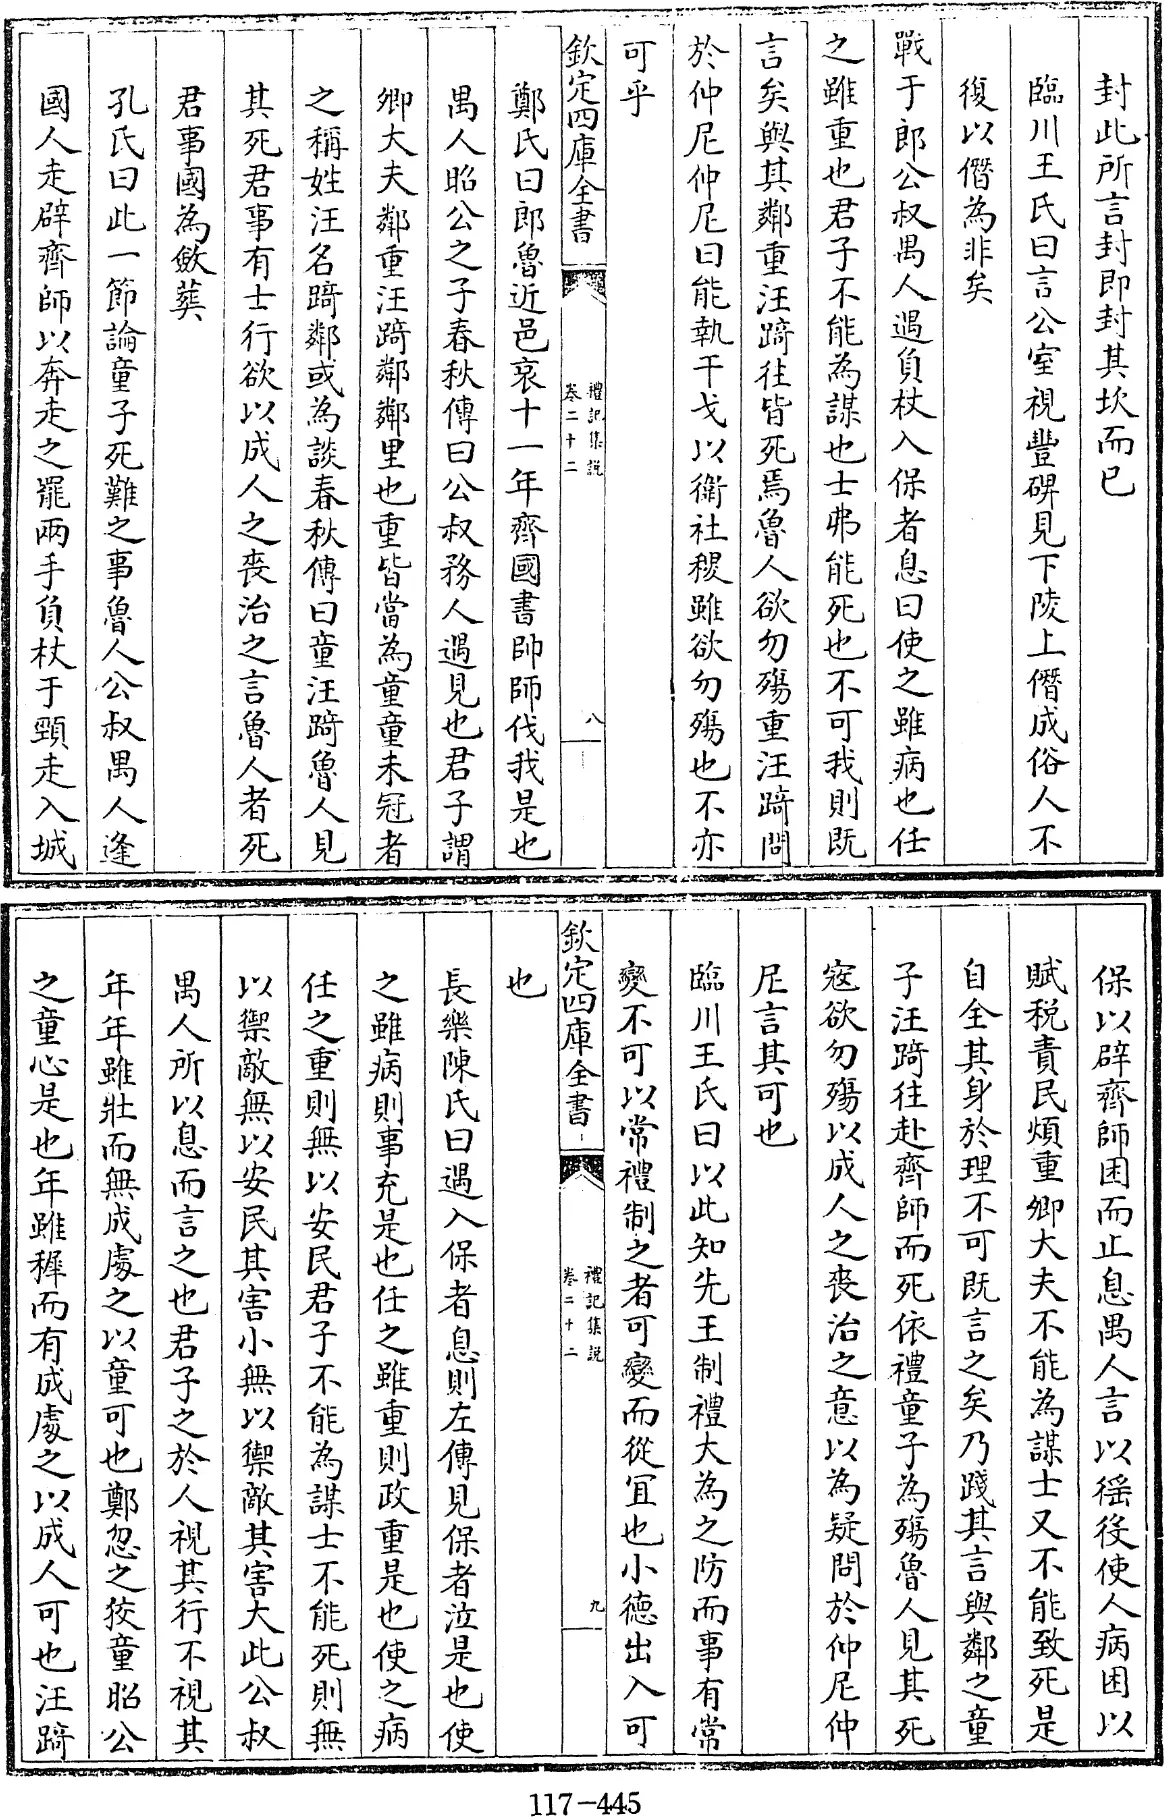 封此所言封即封其坎而已
臨川王氏曰言公室視豐碑見下陵上僭成俗人不
復以僭為非矣
戰于郎公叔禺人遇負杖入保者息曰使之雖病也任
之雖重也君子不能為謀也士弗能死也不可我則既
言矣與其鄰重汪踦往皆死焉魯人欲勿殤重汪踦問
於仲尼仲尼曰能執干戈以衛社稷雖欲勿殤也不亦
可乎
欽定四庫全書
禮記集說
卷二十二
八
鄭氏曰郎魯近邑哀十一年齊國書帥師伐我是也
禺人昭公之子春秋傳曰公叔務人遇見也君子謂
卿大夫鄰重汪踦鄰鄰里也重皆當為童童未冠者
之稱姓汪名踦鄰或為談春秋傳曰童汪踦魯人見
其死君事有士行欲以成人之喪治之言魯人者死
君事國為斂葬
孔氏曰此一節論童子死難之事魯人公叔禺人逢
國人走辟齊師以奔走之罷兩手負杖于頸走入城
保以辟齊師困而止息禺人言以徭役使人病困以
賦稅責民煩重卿大夫不能為謀士又不能致死是
自全其身於理不可既言之矣乃踐其言與鄰之童
子汪踦往赴齊師而死依禮童子為殤魯人見其死
寇欲勿殤以成人之喪治之意以為疑問於仲尼仲
尼言其可也
臨川王氏曰以此知先王制禮大為之防而事有常
變不可以常禮制之者可變而從宜也小德出入可
欽定四庫全書
禮記集說
卷二十二
九
也
長樂陳氏曰遇入保者息則左傳見保者泣是也使
之雖病則事充是也任之雖重則政重是也使之病
任之重則無以安民君子不能為謀士不能死則無
以禦敵無以安民其害小無以禦敵其害大此公叔
禺人所以息而言之也君子之於人視其行不視其
年年雖壯而無成處之以童可也鄭忽之狡童昭公
之童心是也年雖稺而有成處之以成人可也汪踦
117-445